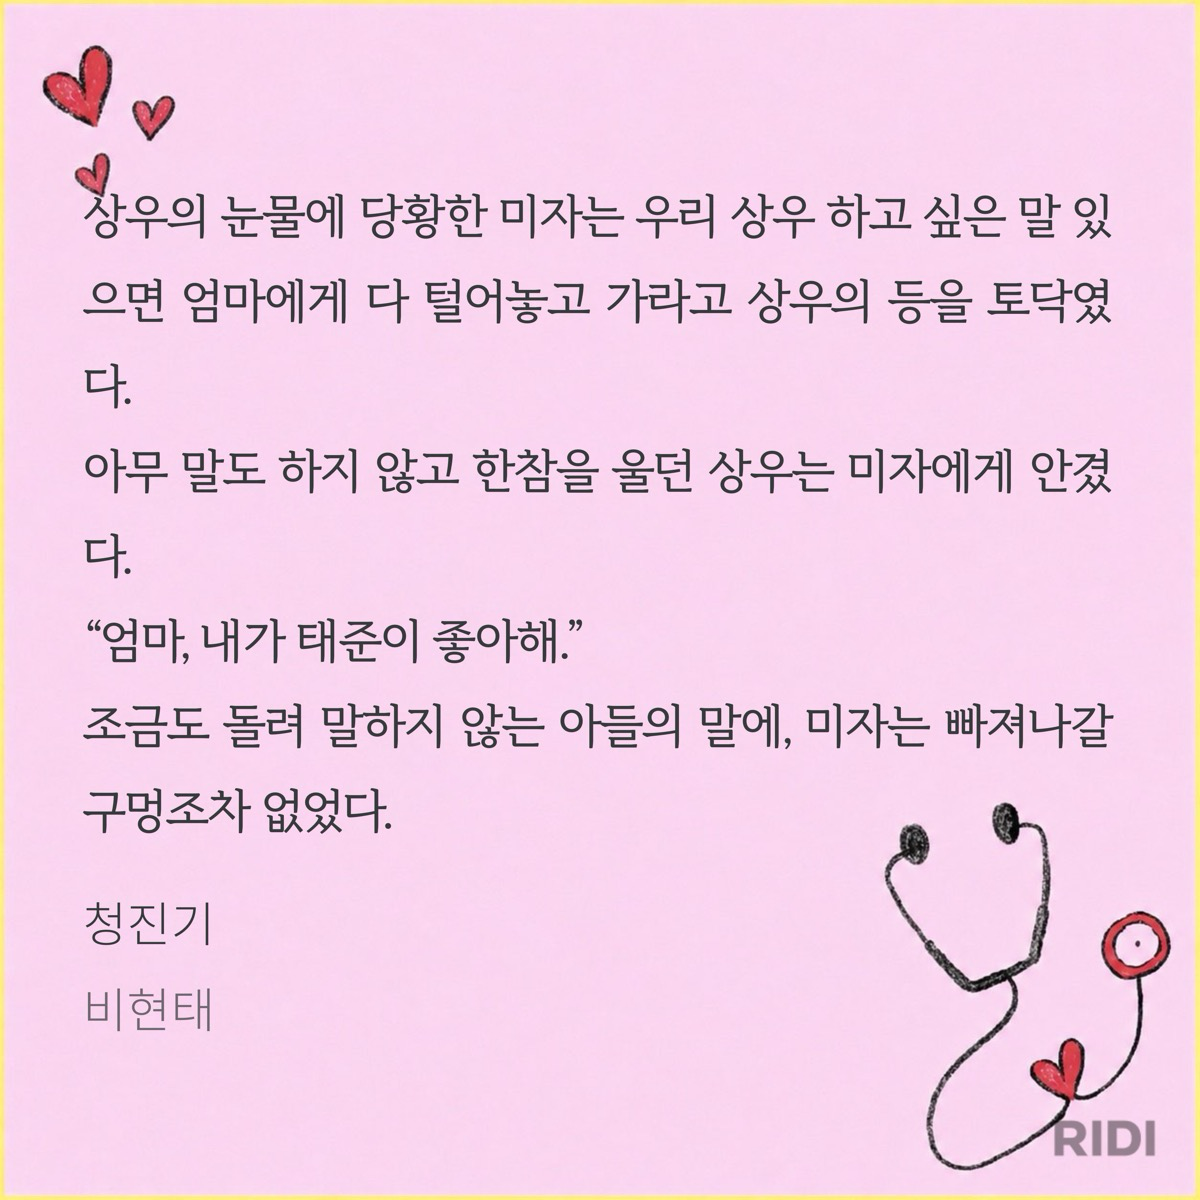 상우의 눈물에 당황한 미자는 우리 상우 하고 싶은 말 있
으면 엄마에게 다 털어놓고 가라고 상우의 등을 토닥였
다.
아무 말도 하지 않고 한참을 울던 상우는 미자에게 안겼
다.
“엄마, 내가 태준이 좋아해.”
조금도 돌려 말하지 않는 아들의 말에, 미자는 빠져나갈
구멍조차 없었다.
청진기
비현태
RIDI